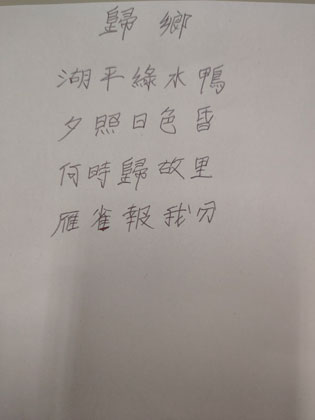 歸鄉
湖平綠水鴨
夕照日色昏
何時歸故里
雁雀報我分